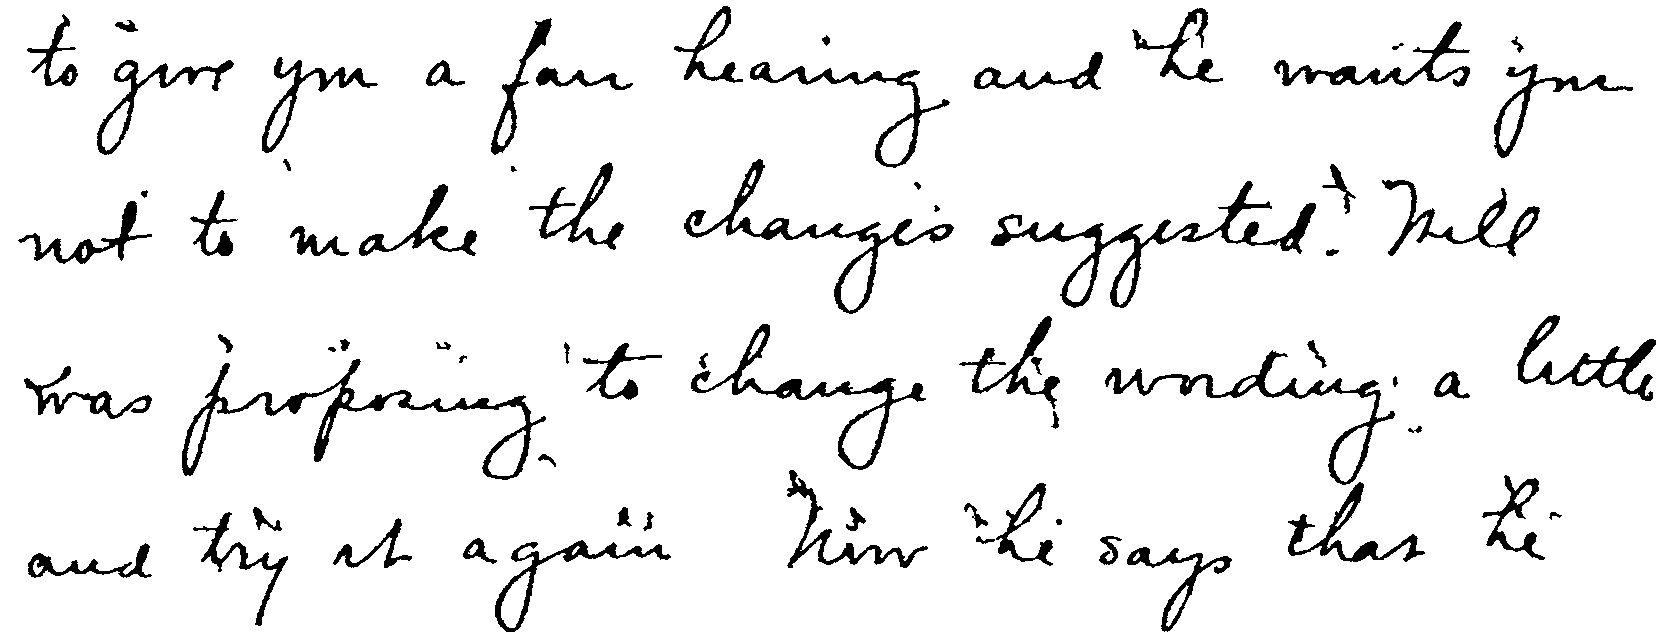 to give you a fair hearing and he wants you
not to make the changes suggested. Will
was proposing to change the wording a little
and try it again Now he says that he